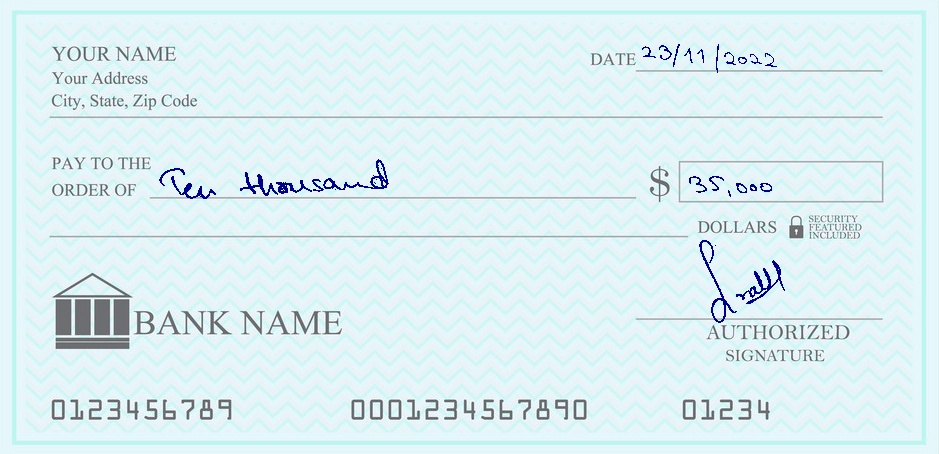 YOUR NAME
DATE 23/11/2022
Your Address
City, State, Zip Code
PAY TO THE
ORDER OF Ten thousand $ 35,000
DOLLARS SECURITY
FEATURED
INCLUDED
BANK NAME
AUTHORIZED
SIGNATURE
0123456789 0001234567890 01234